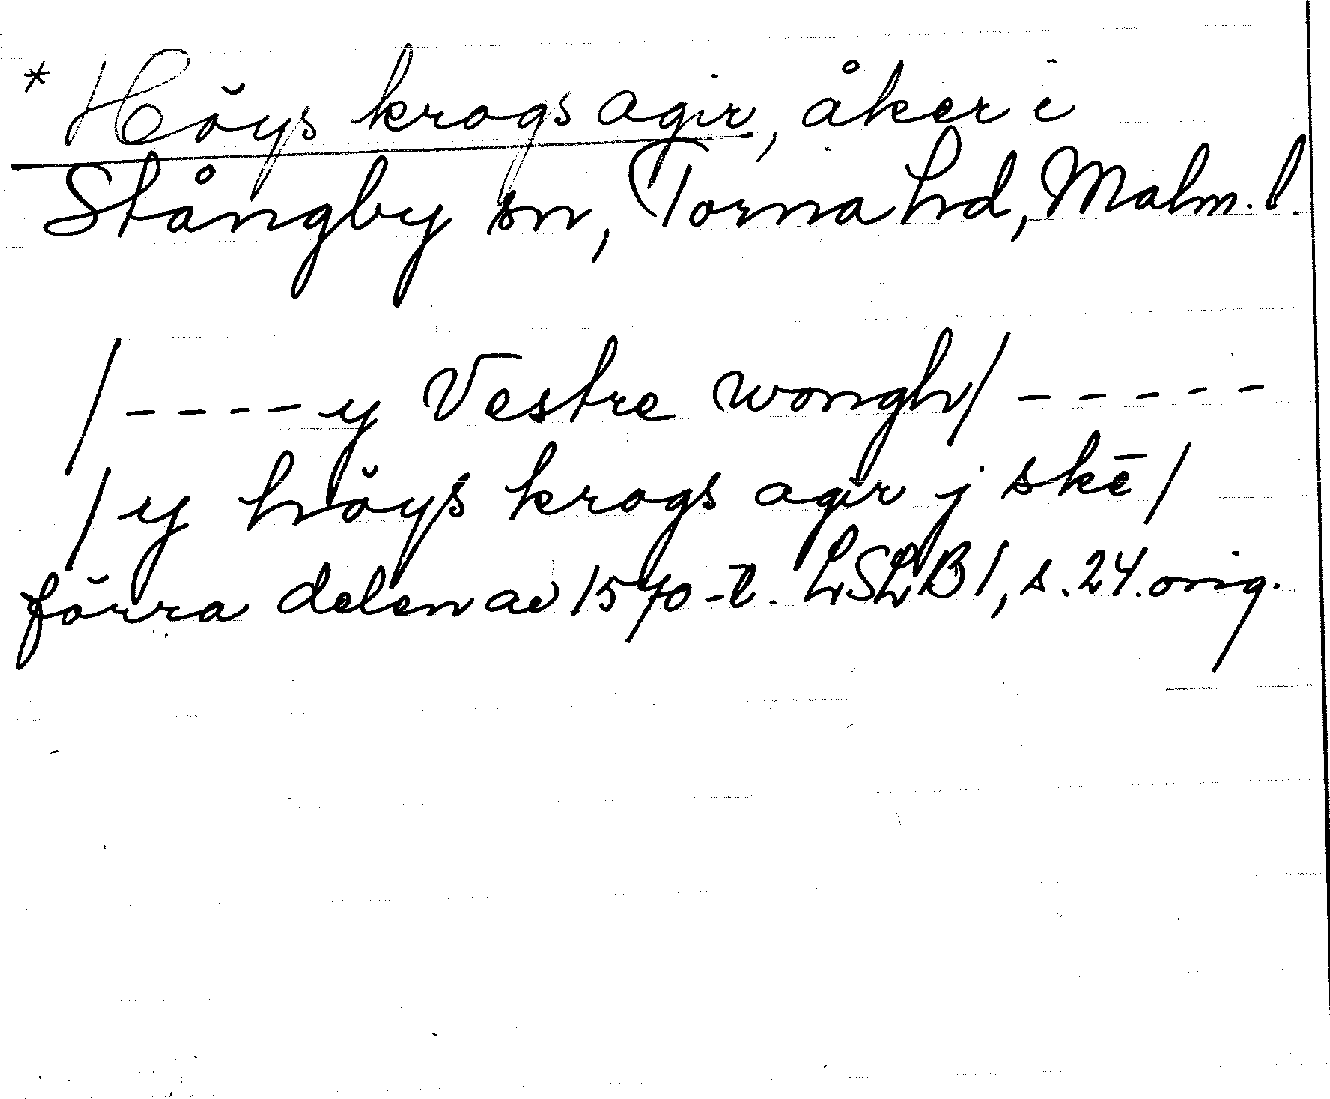 * Höys krogs agir, åker i
Stångby sn, Torna hd, Malm. l.
/----y Vestre wongh/-----
/y höys krogs agir j skē/
förra delen av 1570-t. LSLB 1, s. 24. orig.